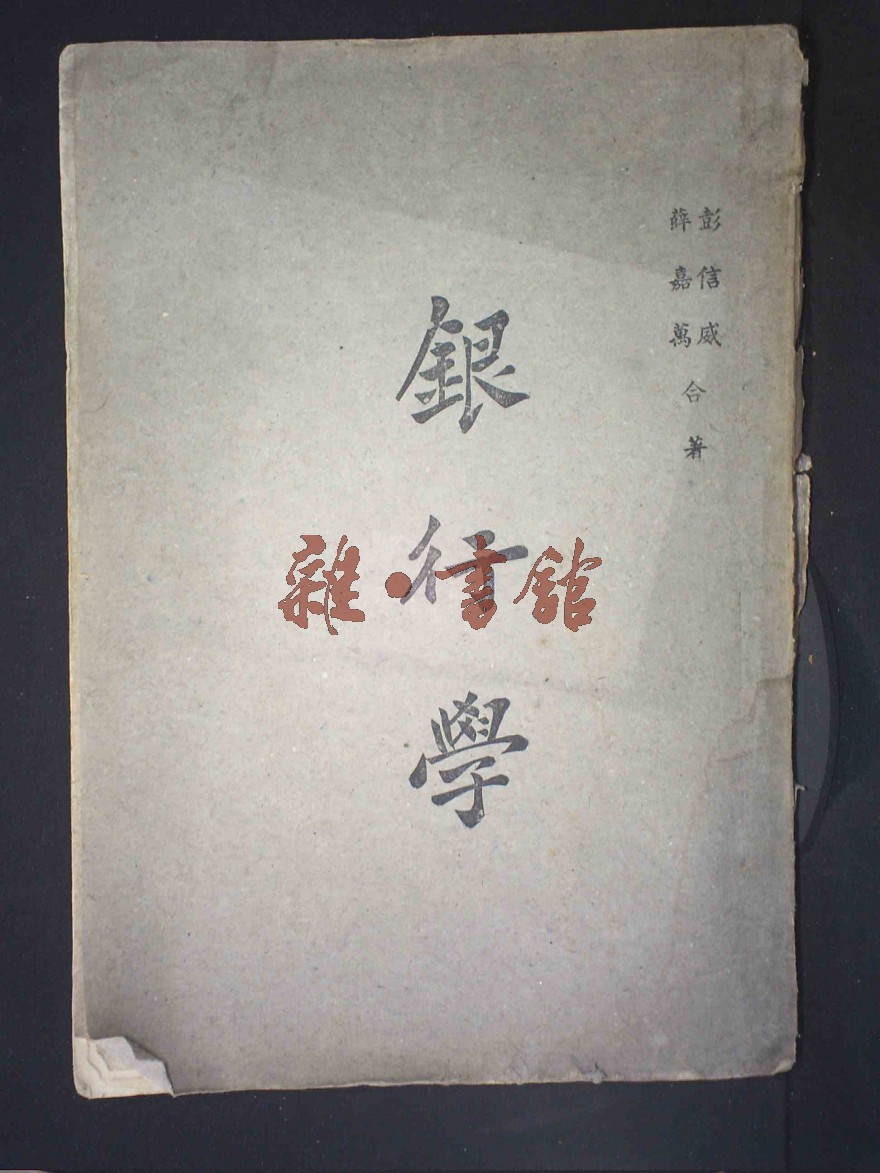 彭信威
薛嘉萬
合著
銀行學
雜·書館